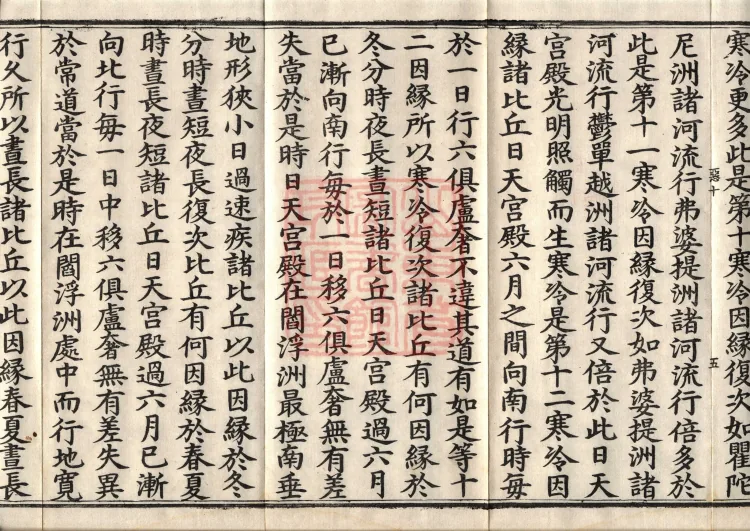 寒冷更多此是第十寒冷因緣復次如瞿陀
尼洲諸河流行弗婆提洲諸河流行倍多於
此是第十一寒冷因緣復次如弗婆提洲諸
河流行鬱單越洲諸河流行又倍於此日天
宮殿光明照觸而生寒冷是第十二寒冷因
緣諸比丘日天宮殿六月之間向南行時每
於一日行六俱盧奢不違其道有如是等十
二因緣所以寒冷復次諸比丘有何因緣於
冬分時夜長晝短諸比丘日天宮殿過六月
已漸向南行每於一日移六俱盧奢無有差
失當於是時日天宮殿在閻浮洲最極南垂
地形狹小日過速疾諸比丘以此因緣於冬
分時晝短夜長復次比丘有何因緣於春夏
時晝長夜短諸比丘日天宮殿過六月已漸
向北行每一日中移六俱盧奢無有差失異
於常道當於是時在閻浮洲處中而行地寬
行久所以晝長諸比丘以此因緣春夏晝長
五